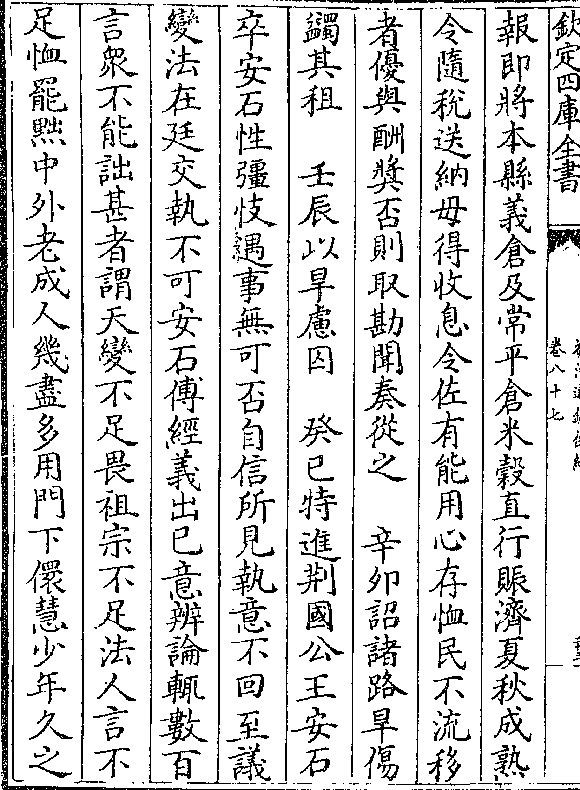 欽定四庫全書
卷八十七
報即將本縣義倉及常平倉米穀直行賑濟夏秋成熟
令隨稅送納毋得收息令佐有能用心存恤民不流移
者優與酬奬否則取勘聞奏從之　辛卯詔諸路旱傷
蠲其租　壬辰以旱慮囚　癸巳特進荆國公王安石
卒安石性彊忮遇事無可否自信所見執意不回至議
變法在廷交執不可安石傅經義出已意辨論輒數百
言衆不能詘甚者謂天變不足畏祖宗不足法人言不
足恤罷黜中外老成人幾盡多用門下儇慧少年久之